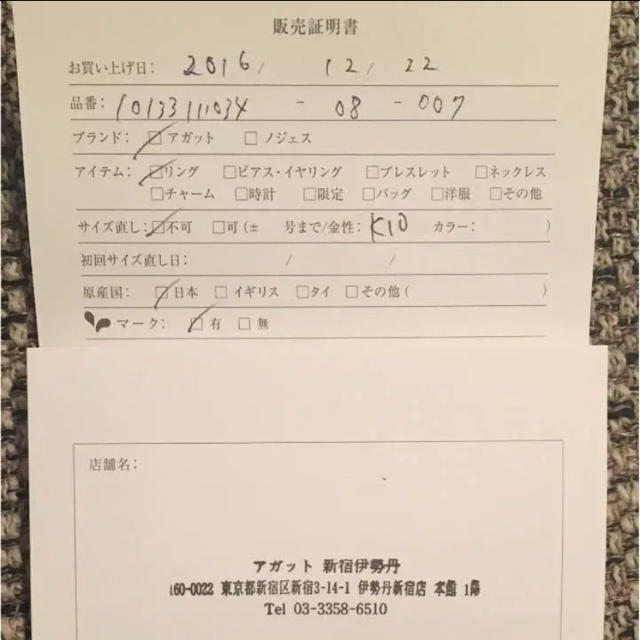 販売証明書
お買い上げ日: 2016 / 12 / 22
品番: 10133111034 - 08 - 007
ブランド: ☑ アガット □ ノジェス
アイテム: ☑リング □ピアス・イヤリング □ブレスレット □ネックレス
□チャーム □時計 □限定 □バッグ □洋服 □その他
サイズ直し: ☑不可 □可 (± 号まで/金性: K10 カラー: )
初回サイズ直し日: / /
原産国: ☑日本 □イギリス □タイ □その他 ( )
マーク: ☑ 有 □ 無
店舗名:
アガット 新宿伊勢丹
160-0022 東京都新宿区新宿3-14-1 伊勢丹新宿店 本館 1階
Tel 03-3358-6510